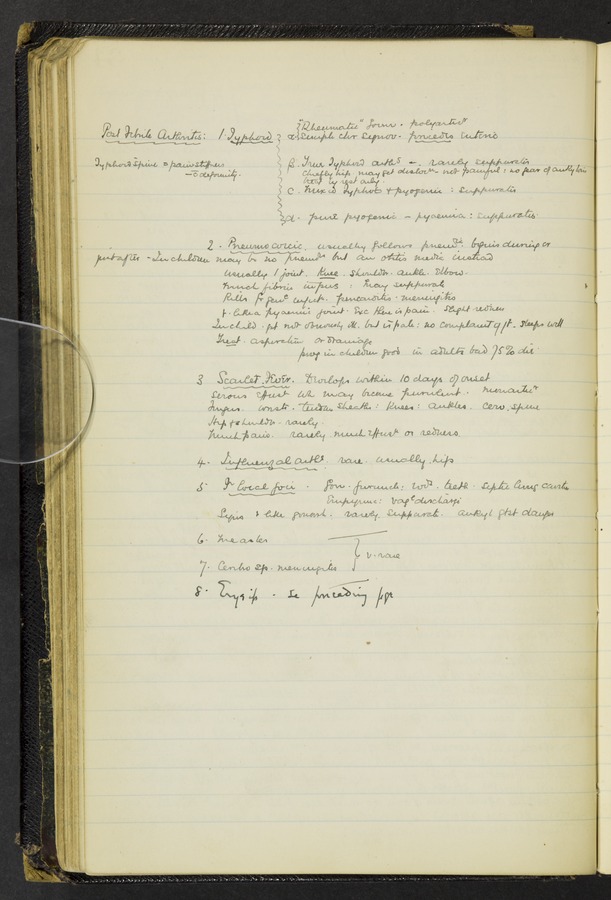 Post Febrile Arthritis: 1 Typhoid
"Rheumatic" form - polyartic
a. Simple chr. Synov. precedes enteric
Typhoid Spine = pain & stiffness
- deformity.
β. True Typhoid arths - rarely suppurates
chiefly hip may get disloc. not painful: no fear of ankylosis
C. Mixed typhoid + pyogenic : suppurates
d. pure pyogenic - pyaemia : suppurates
2. Pneumococcic. usually follows pneum. begins during or
just after - In children may be no pneum. but an otitis media instead
usually 1 joint. Knee. shoulder. ankle. elbow.
Much fibrin in pus : may suppurate
Kills fr genl infect. pericarditis - meningitis
like a pyaemic joint. Exc there is pain. slight redness
In child. not obviously ill. but is pale: no complaint of jt. sleeps well
Treat. aspiration or drainage
prog in children good in adults bad 75% die
3 Scarlet Fever. Develops within 10 days of onset
Serous effusn wh may become purulent.
fingers. wrists. tendon sheaths: knees: ankles. cerv. spine
Hip & shoulder. rarely.
Much pain. rarely much effusn or redness.
4. Influenzal arths. rare. usually hips
5 Fr local foci - Gon. furuncle: teeth. septic lung cavities
Empyema: vagl discharge
Signs like gonorrh. rarely suppurate. ankyl gtst danger
6. Measles
7. Cerebro sp. meningitis
v. rare
8. Erysip. - See preceding page